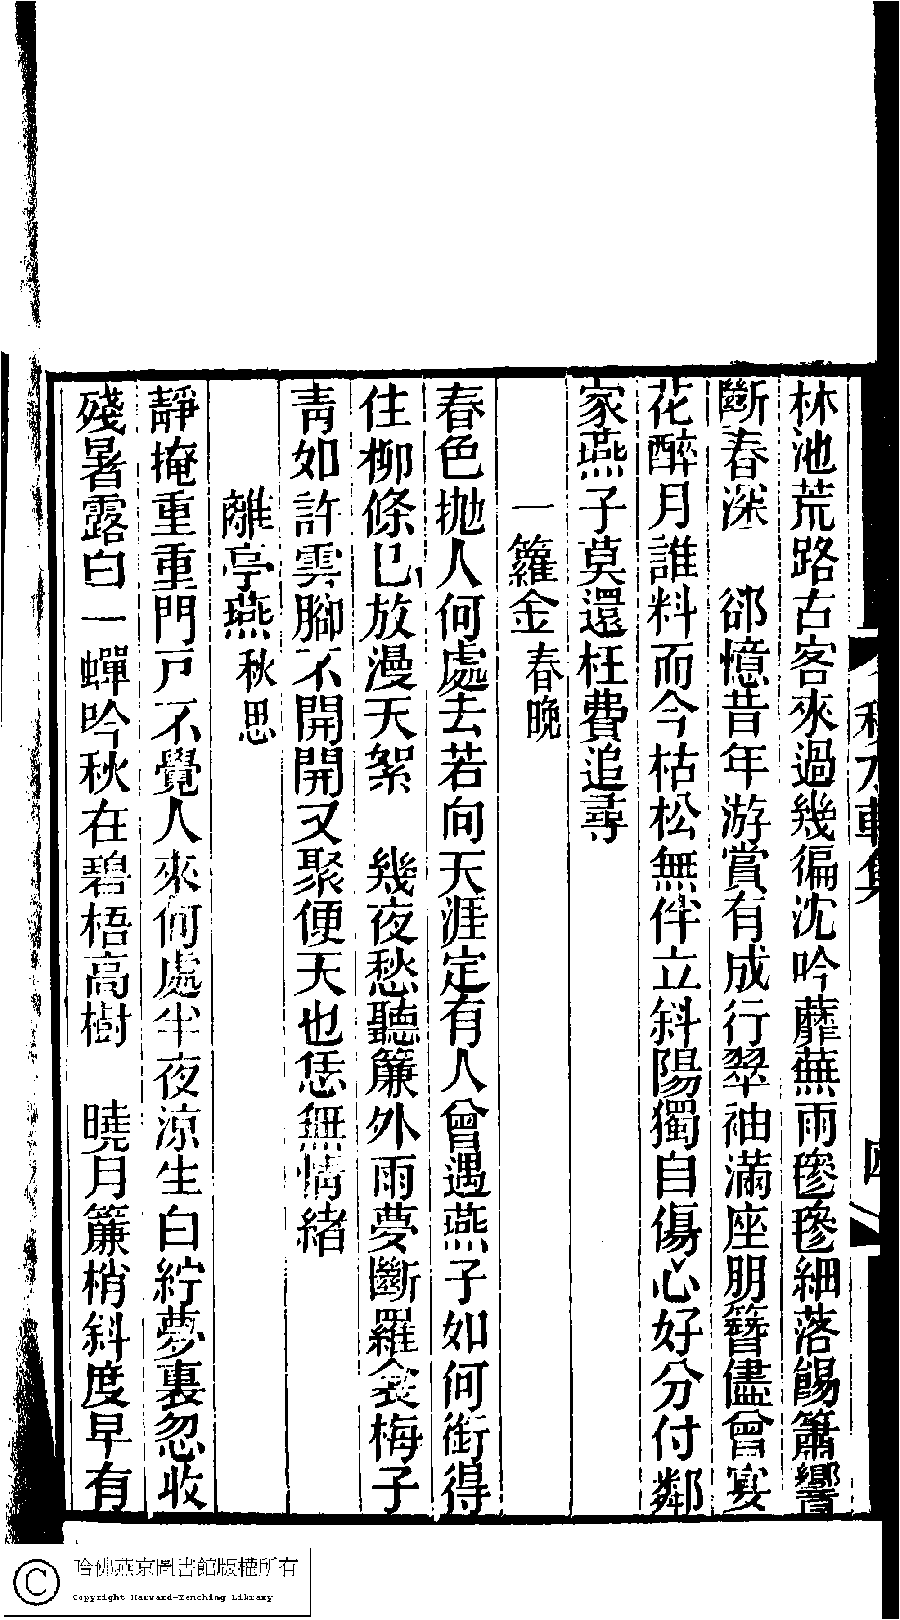 林池荒路古客來過幾徧沈吟蘼蕪雨毿毿細落餳簫響
斷春深　郤憶昔年游賞有成行翠袖滿座朋簪儘曾宴
花醉月誰料而今枯松無伴立斜陽獨自傷心好分付鄰
家燕子莫還枉費追尋
一籮金春晚
春色拋人何處去若向天涯定有人曾遇燕子如何銜得
住柳條已放漫天絮　幾夜愁聽簾外雨夢斷羅衾梅子
靑如許雲腳不開開又聚便天也恁無情緒
離亭燕秋思
靜掩重重門戸不覺人來何處半夜涼生白紵夢裏忽收
殘暑露白一蟬吟秋在碧梧高樹　曉月簾梢斜度早有
秋水軒集
四
哈佛燕京圖書館版權所有
Copyright Harvard-Yenching Library